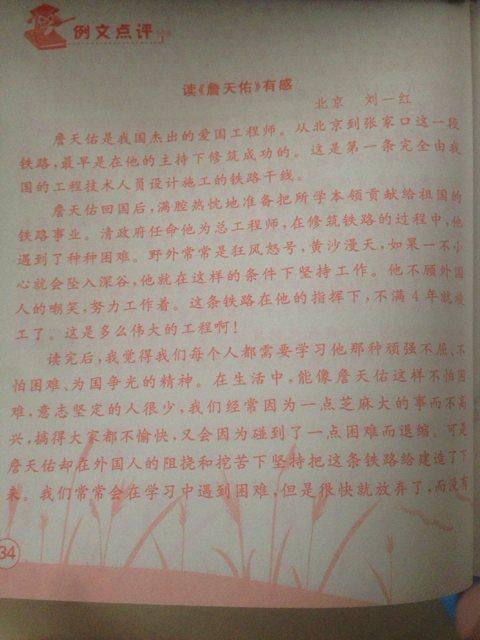 例文点评
读《詹天佑》有感
北京 刘一红
詹天佑是我国杰出的爱国工程师。从北京到张家口这一段
铁路,最早是在他的主持下修筑成功的。这是第一条完全由我
国的工程技术人员设计施工的铁路干线。
詹天佑回国后,满腔热忱地准备把所学本领贡献给祖国的
铁路事业。清政府任命他为总工程师,在修筑铁路的过程中,他
遇到了种种困难。野外常常是狂风怒号,黄沙漫天,如果一不小
心就会坠入深谷,他就在这样的条件下坚持工作。他不顾外国
人的嘲笑,努力工作着。这条铁路在他的指挥下,不满4年就竣
工了。这是多么伟大的工程啊!
读完后,我觉得我们每个人都需要学习他那种顽强不屈、不
怕困难、为国争光的精神。在生活中,能像詹天佑这样不怕困
难,意志坚定的人很少,我们经常因为一点芝麻大的事而不高
兴,搞得大家都不愉快,又会因为碰到了一点困难而退缩。可是
詹天佑却在外国人的阻挠和挖苦下坚持把这条铁路给建造了下
来。我们常常会在学习中遇到困难,但是很快就放弃了,而没有
34